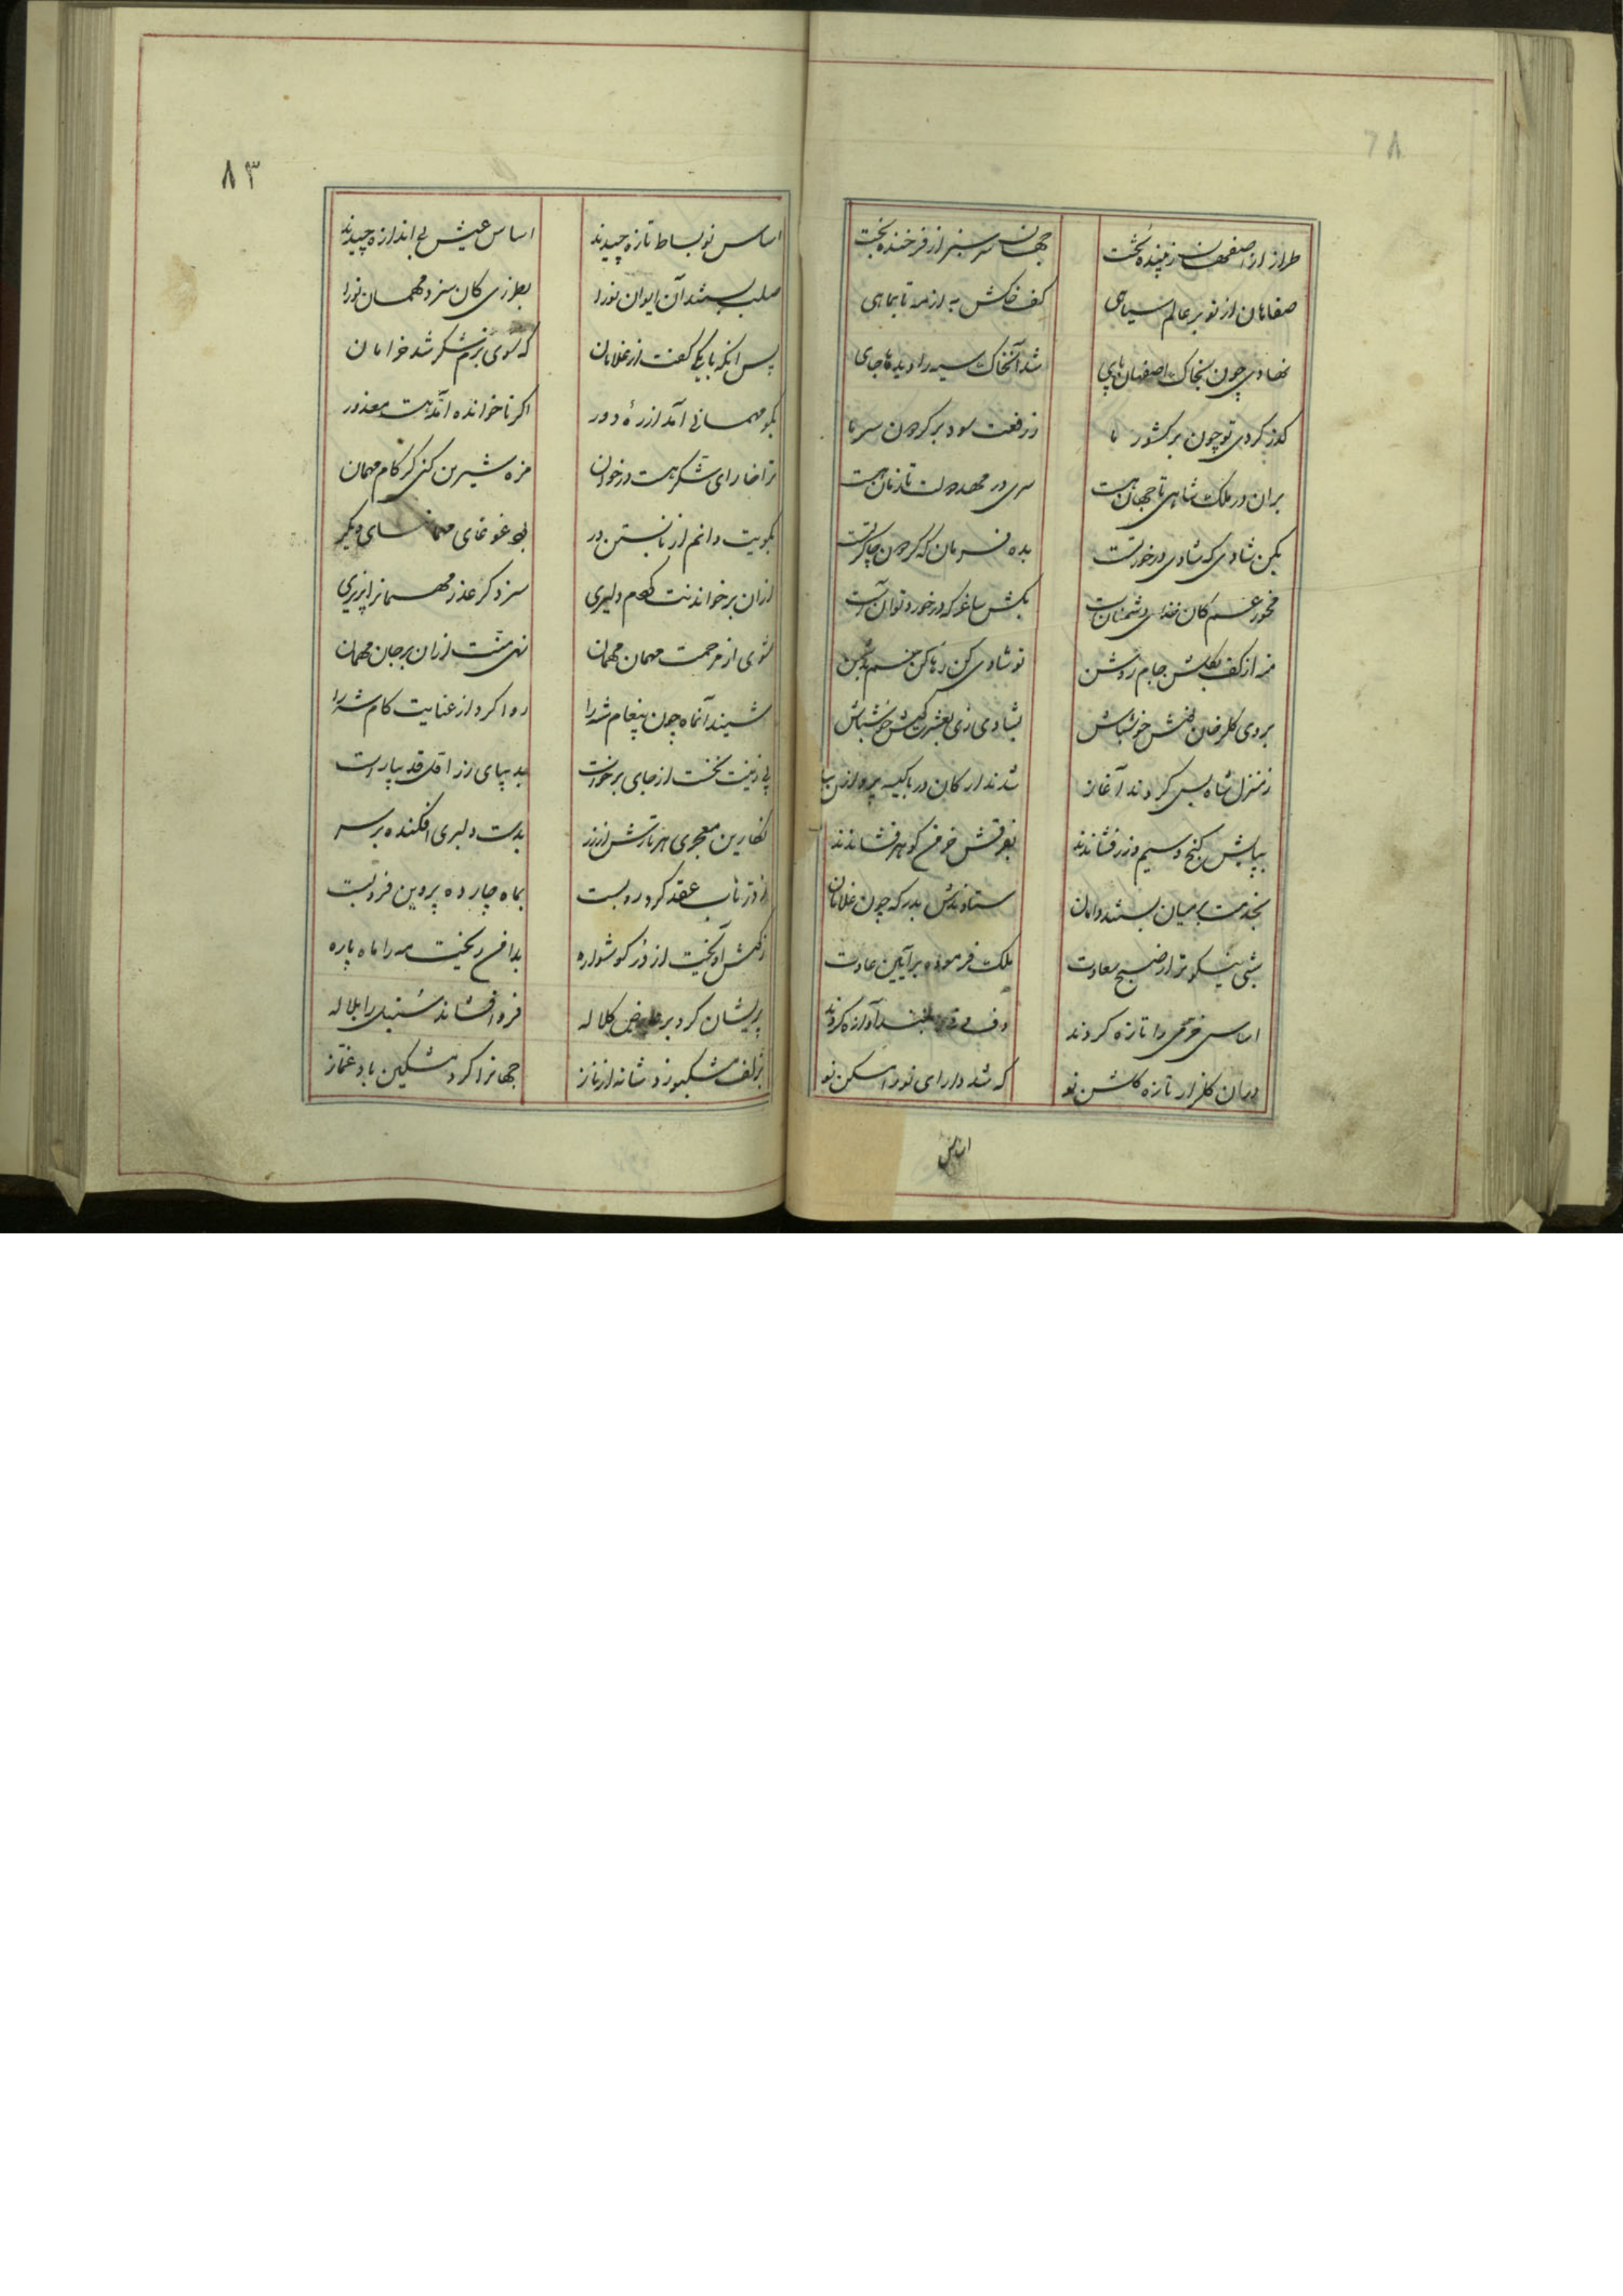 ٦٨
طراز از اصفهان زیبنده تخت جهان سرسبز از فرخنده بخت
صفاهان از تو بر عالم سیاهی کف خاکش به از مه تا بماهی
نهادی چون بخاک اصفهان پای شد آنخاک سیه را دیده‌ها جای
گذر کردی تو چون بر کشور ما ز رفعت سود بر گردون سر ما
بران در ملک شاهی تا جهان هست سری در مهد دولت تا زمان هست
بکن شادی که شادی درخور تست بده فرمان که گردون چاکر تست
مخور غم کان غذای دشمنانست بکش ساغر که درخورد توانست
منه از کف بگلشن جام روشن تو شادی کن رها کن غم بدشمن
بروی گلرخان بنشین خوشباش بشادی زی بعشرت کوش خوشباش
ز منزل شاه پس کردند آغاز شدند ار کان در با کیسه پرداز
بپایش گنج و سیم و زر فشاندند بفرقش خرمن گوهر فشاندند
بخدمت بر میان بستند دامان ستادندش بدرگه چون غلامان
شبی نیکوتر از صبح سعادت ملک فرموده بر آیین عادت
اساس خرمی را تازه کردند دف و نی بلند آوازه کردند
در آن گلزار تازه گلشن نو که شد دارای نو را مسکن نو
٨٣
اساس نو بساط تازه چیدند اساس عیش بی اندازه چیدند
صلب بستند آن ایوان نو را بطرزی کان سزد مهمان نو را
پس آنکه با یکی گفت از غلامان که سوی بزم شکر شد خرامان
بگو مهمانی آمد از ره دور اگر ناخوانده آمد هست معذور
ترا خارای شکر هست در خوان مزه شیرین کنی گر کام مهمان
بگویت دانم از نابستن در بود غوغای مهمانهای دیگر
از آن برخواندنت کردم دلیری سزد گر عذر مهمانرا پذیری
شوی از مرحمت مهمان مهمان نهی منت از آن بر جان مهمان
شنید آنماه چون پیغام شه را روا کرد از عنایت کام شه را
پی زینت نخست از جای برخواست بدیبای زر اقلی قد بیاراست
نگارین معجری هر تارش از زر بدست دلبری افکنده بر سر
از در ناب عقد گردرو بست بماه چارده پروین فرو بست
ز گوش آویخت از در گوشواره بدامن ریخت مه را ماه پاره
پریشان کرد بر عارض کلاله فرو افشاند سنبل را بلاله
بزلف مشکبو زد شانه از ناز جهانرا کرد مشکین باد غماز
اساس